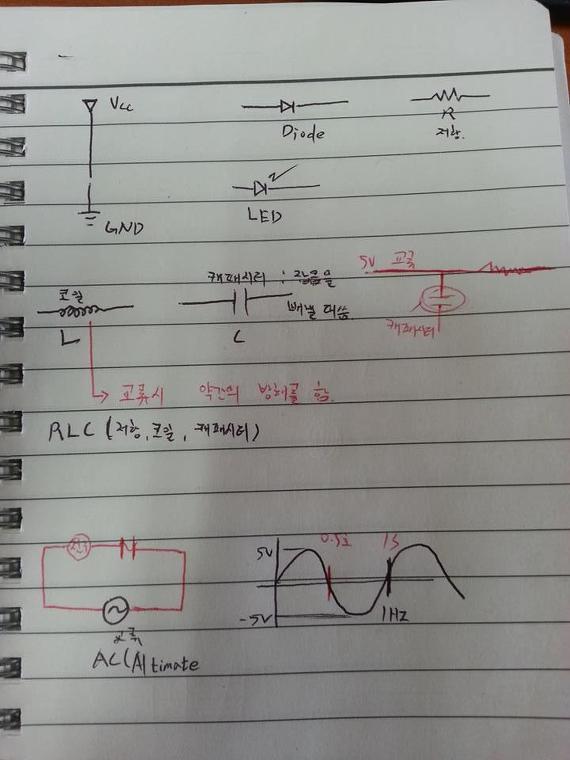 Vcc
Diode
R
저항.
LED
GND
코일
L
캐패시터 :
빼낼 때씀.
C
5V 교류
캐패시터
교류시 약간의 방해를 함.
RLC (저항, 코일, 캐패시터)
5V
0.5초
1s
-5V
1Hz
AC(Altimate